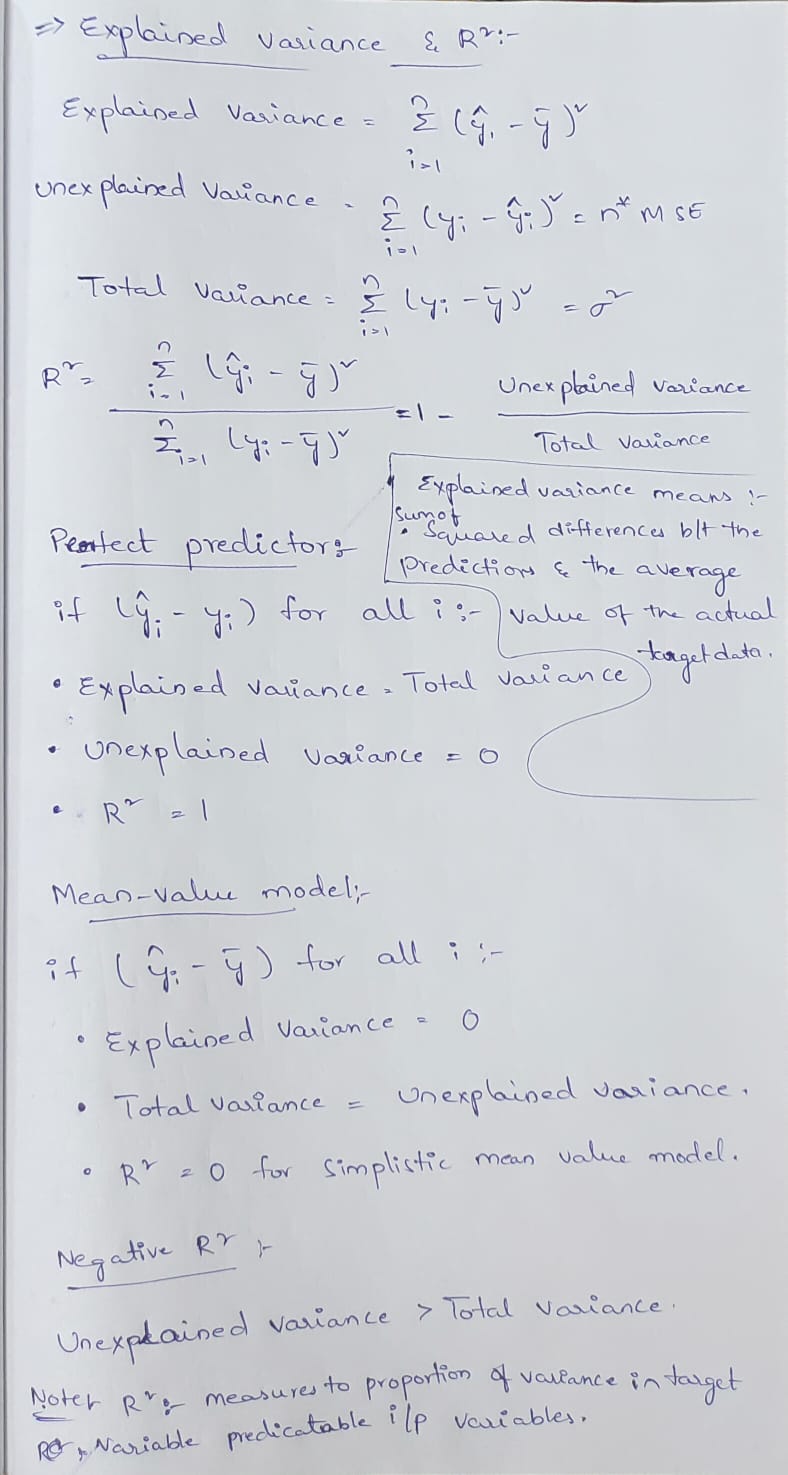 => Explained variance & R²:-
Explained Variance = n Σ i=1 (ŷi - ȳ)²
Unexplained Variance = n Σ i=1 (yi - ŷi)² = n* MSE
Total Variance = n Σ i=1 (yi - ȳ)² = σ²
R² = n Σ i=1 (ŷi - ȳ)² / n Σ i=1 (yi - ȳ)² = 1 - Unexplained Variance / Total Variance
Explained variance means :-
Sum of
• Squared differences b/t the
predictions & the average
value of the actual
target data.
Perfect predictor:-
if (ŷi - yi) for all i :-
• Explained Variance = Total Variance
• Unexplained Variance = 0
• R² = 1
Mean-value model:-
if (ŷi - ȳ) for all i :-
• Explained Variance = 0
• Total Variance = Unexplained Variance.
• R² = 0 for Simplistic mean value model.
Negative R² :-
Unexplained Variance > Total Variance.
Note:- R²:- measures to proportion of variance in target
Variable predicatable i/p variables.